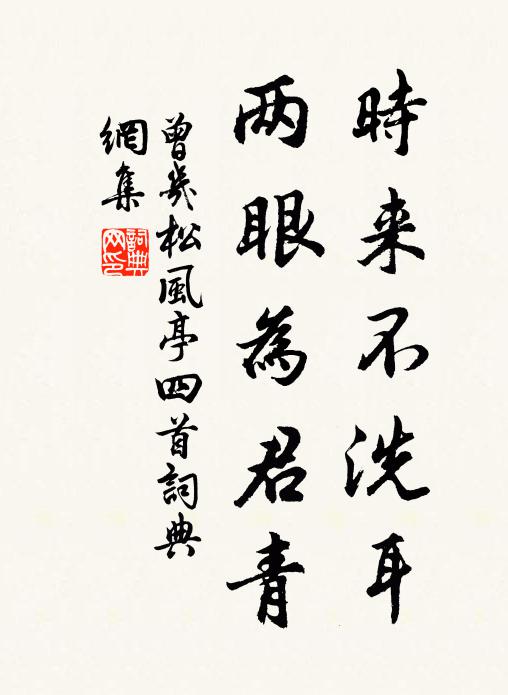 時来不洗耳
两眼為君青
曾幾松風亭四首詞典
網集
詞典
网印